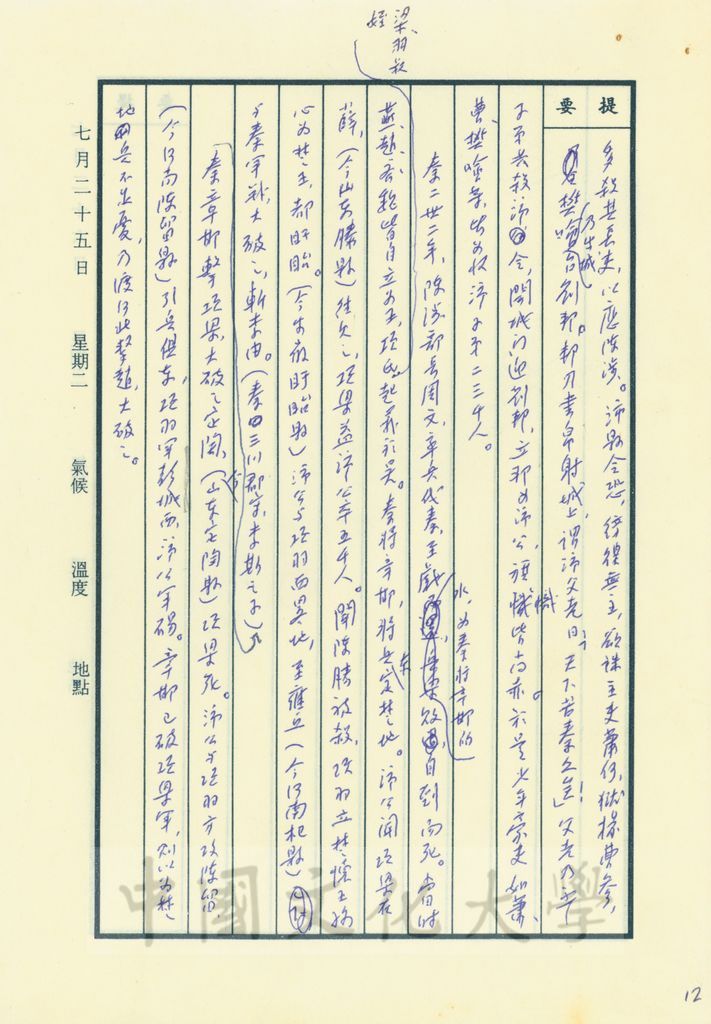 提要
多殺其長吏，以應陳涉。沛縣令恐，後無主，欲誅主吏蕭何，獄掾曹參，
樊噲乃出城召劉邦。邦乃書帛射城上，謂沛父老曰：「天下苦秦久矣！」父老乃率
子弟共殺沛令，開城門迎劉邦，立邦為沛公，旗幟皆尚赤。於是少年豪吏如蕭、
曹、樊噲等，皆為收沛子弟二三千人。
秦二世二年，陳涉部長周文，率兵伐秦，至戲水，為秦將章邯所敗，自刭而死。當時
燕、趙、齊、魏皆自立為王，項氏起義於吳。秦將章邯，將兵東定楚地。沛公聞項梁在
薛，（今山東滕縣）往久之，項梁益沛公卒五千人。聞陳勝被殺，項羽立楚懷王孫
心為楚王，都盱眙。（今安徽盱眙縣）沛公與項羽西略地，至雍丘（今河南杞縣）
與秦軍戰，大破之，斬李由。（秦三川郡守，李斯之子）
秦章邯擊項梁大破之定陶，（今山東定陶縣）項梁死。沛公與項羽方攻陳留，
（今河南陳留縣）引兵俱東，項羽軍彭城西，沛公軍碭。章邯已破項梁軍，則以為楚
地兵不足憂，乃渡河北擊趙，大破之。
梁羽叔
姪
七月二十五日 星期二 氣候 溫度 地點
中國文化大學
12